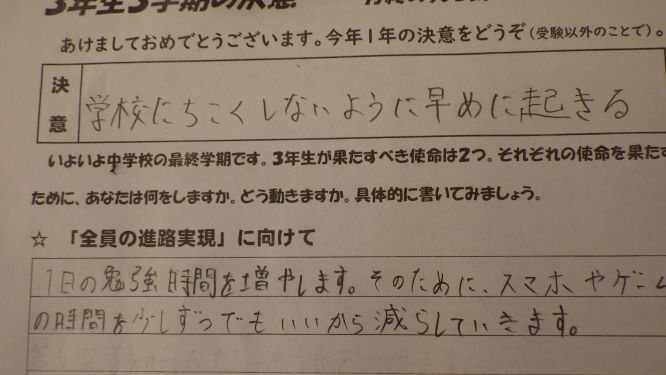 3年生3学期の決意
あけましておめでとうございます。今年1年の決意をどうぞ(受験以外のことで)。
決意
学校にちこくしないように早めに起きる
いよいよ中学校の最終学期です。3年生が果たすべき使命は2つ。それぞれの使命を果たす
ために、あなたは何をしますか。どう動きますか。具体的に書いてみましょう。
☆ 「全員の進路実現」に向けて
1日の勉強時間を増やします。そのために、スマホやゲーム
の時間を少しずつでもいいから減らしていきます。